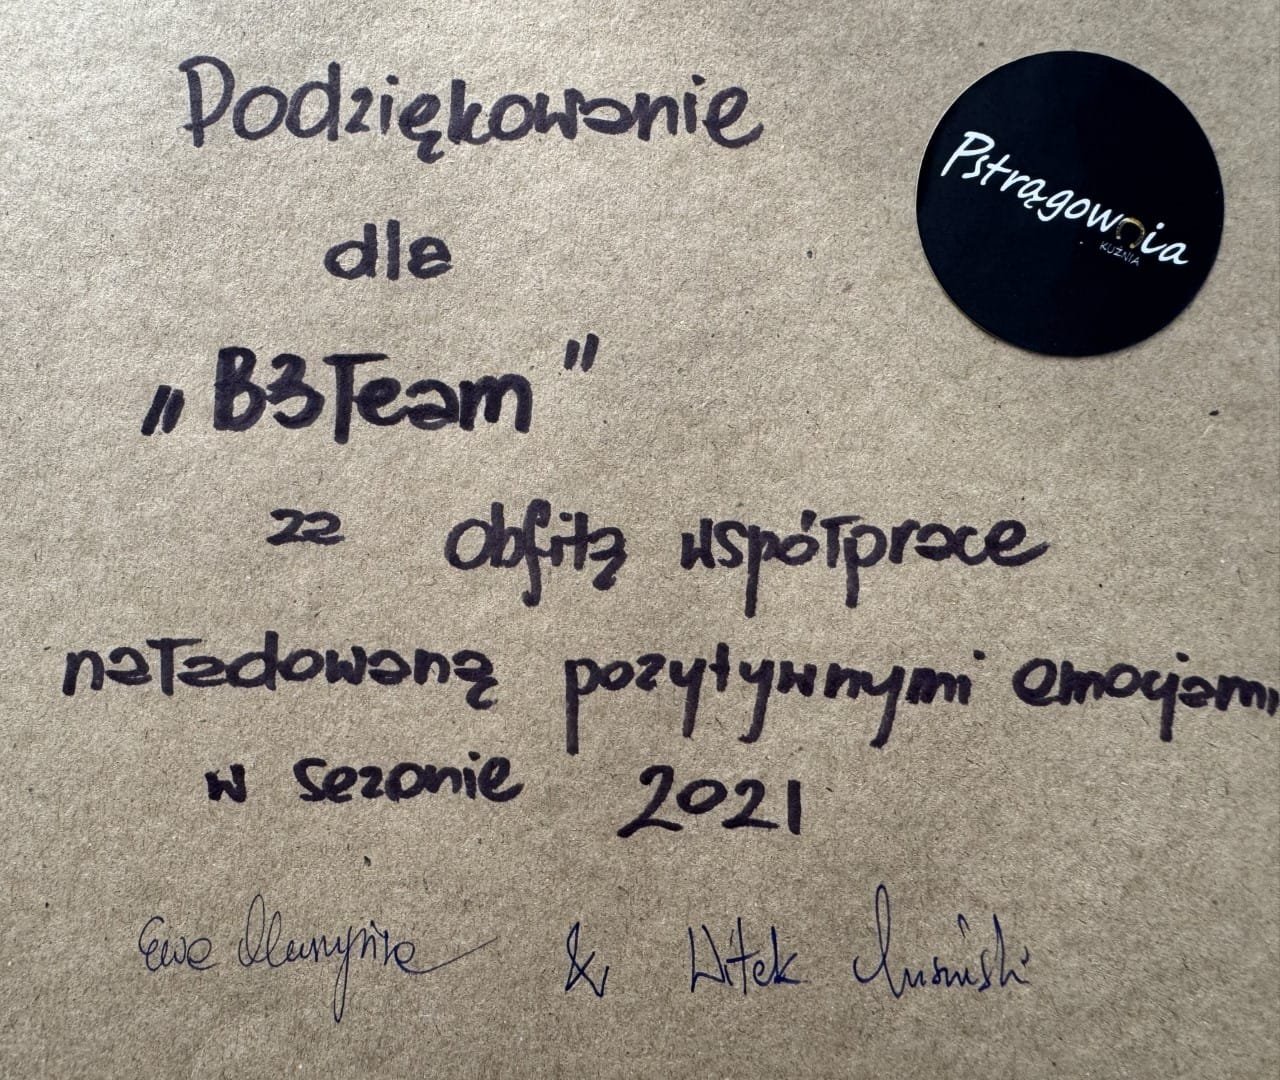 Podziękowanie
dla
„B3Team"
za obfitą współprace
naładowaną pozytywnymi emocjami
w sezonie 2021
Ewa & Witek
Pstrągownia
KUŹNIA